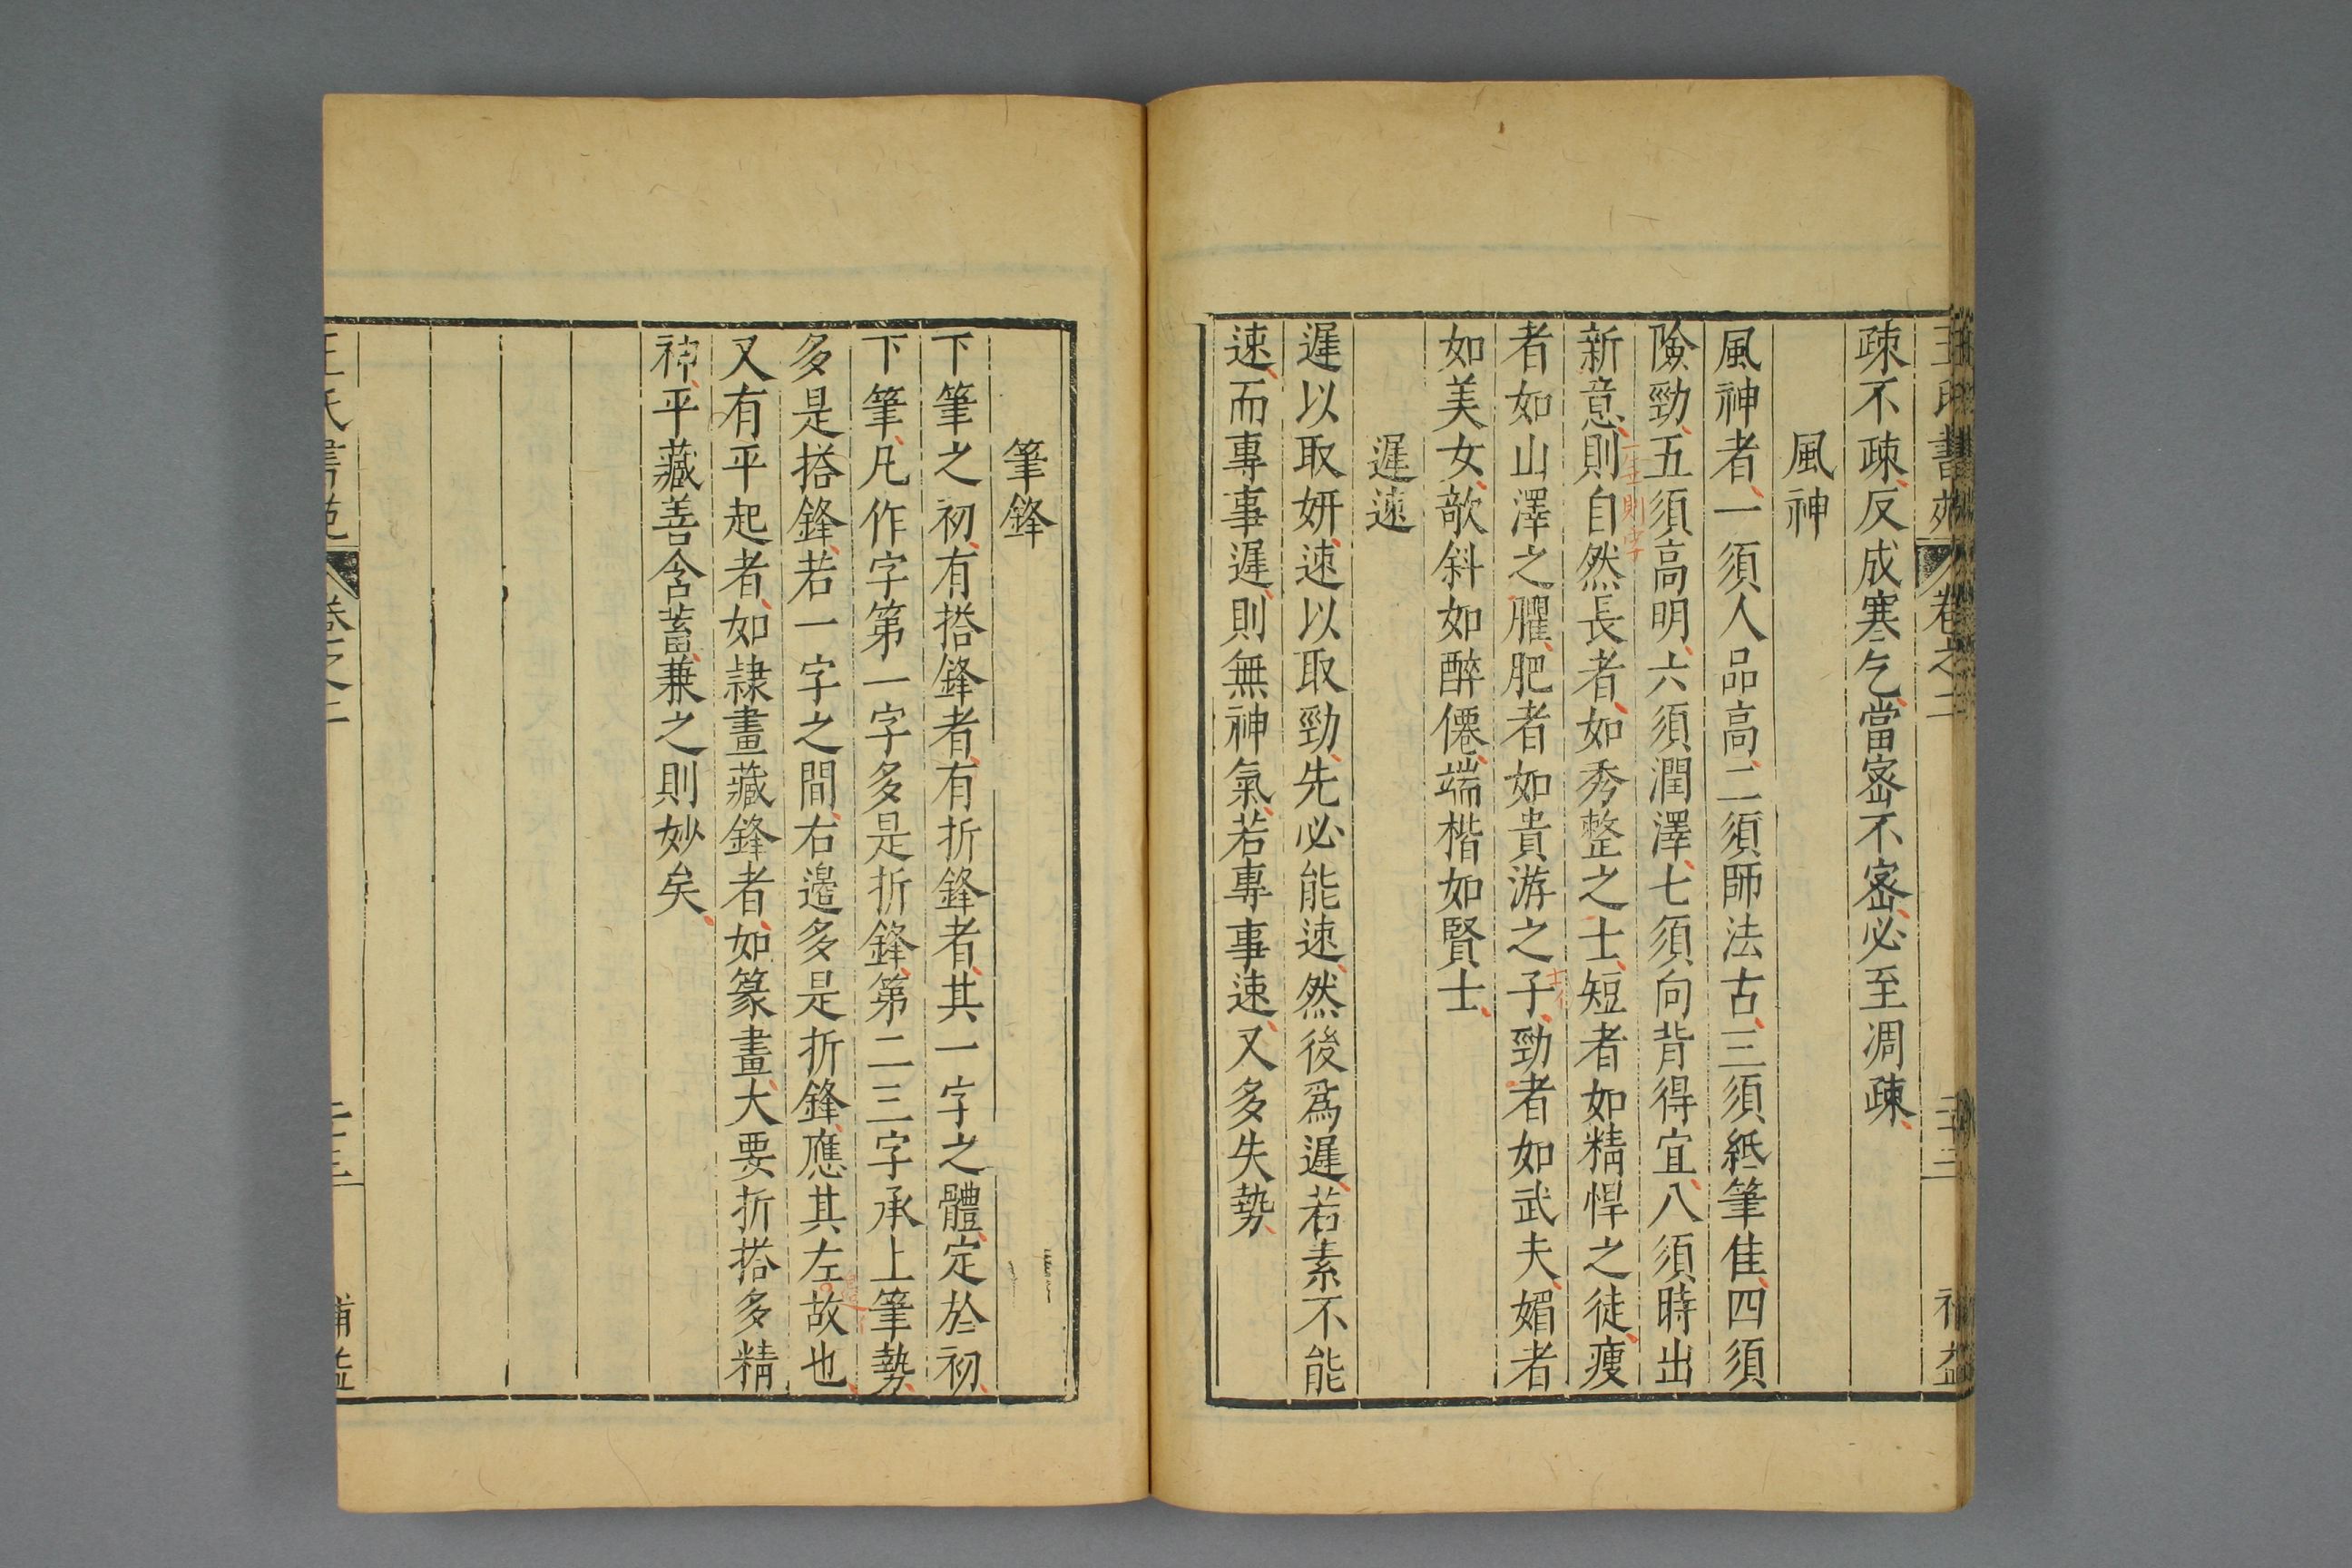 王氏書苑 卷之二 二十三 補益
疎不疎反成寒乞當密不密必至凋疎
風神
風神者一須人品高二須師法古三須紙筆佳四須
險勁五須高明六須潤澤七須向背得宜八須時出
新意則自然長者如秀整之士短者如精悍之徒瘦
者如山澤之臞肥者如貴游之子勁者如武夫媚者
如美女欹斜如醉僊端楷如賢士
遲速
遲以取妍速以取勁先必能速然後爲遲若素不能
速而專事遲則無神氣若專事速又多失勢
筆鋒
下筆之初有搭鋒者有折鋒者其一字之體定於初
下筆凡作字第一字多是折鋒第二三字承上筆勢
多是搭鋒若一字之間右邉多是折鋒應其左故也
又有平起者如隷畫藏鋒者如篆畫大要折搭多精
神平藏善含蓄兼之則妙矣
王氏書苑 卷之二 二十三 補益